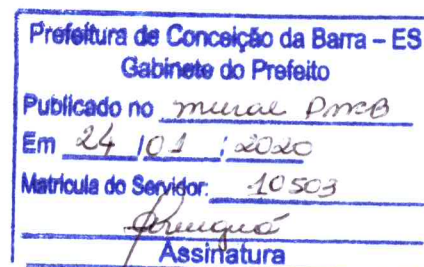 Prefeitura de Conceição da Barra – ES
Gabinete do Prefeito
Publicado no mural PMCB
Em 24 / 01 / 2020
Matrícula do Servidor: 10503
Assinatura